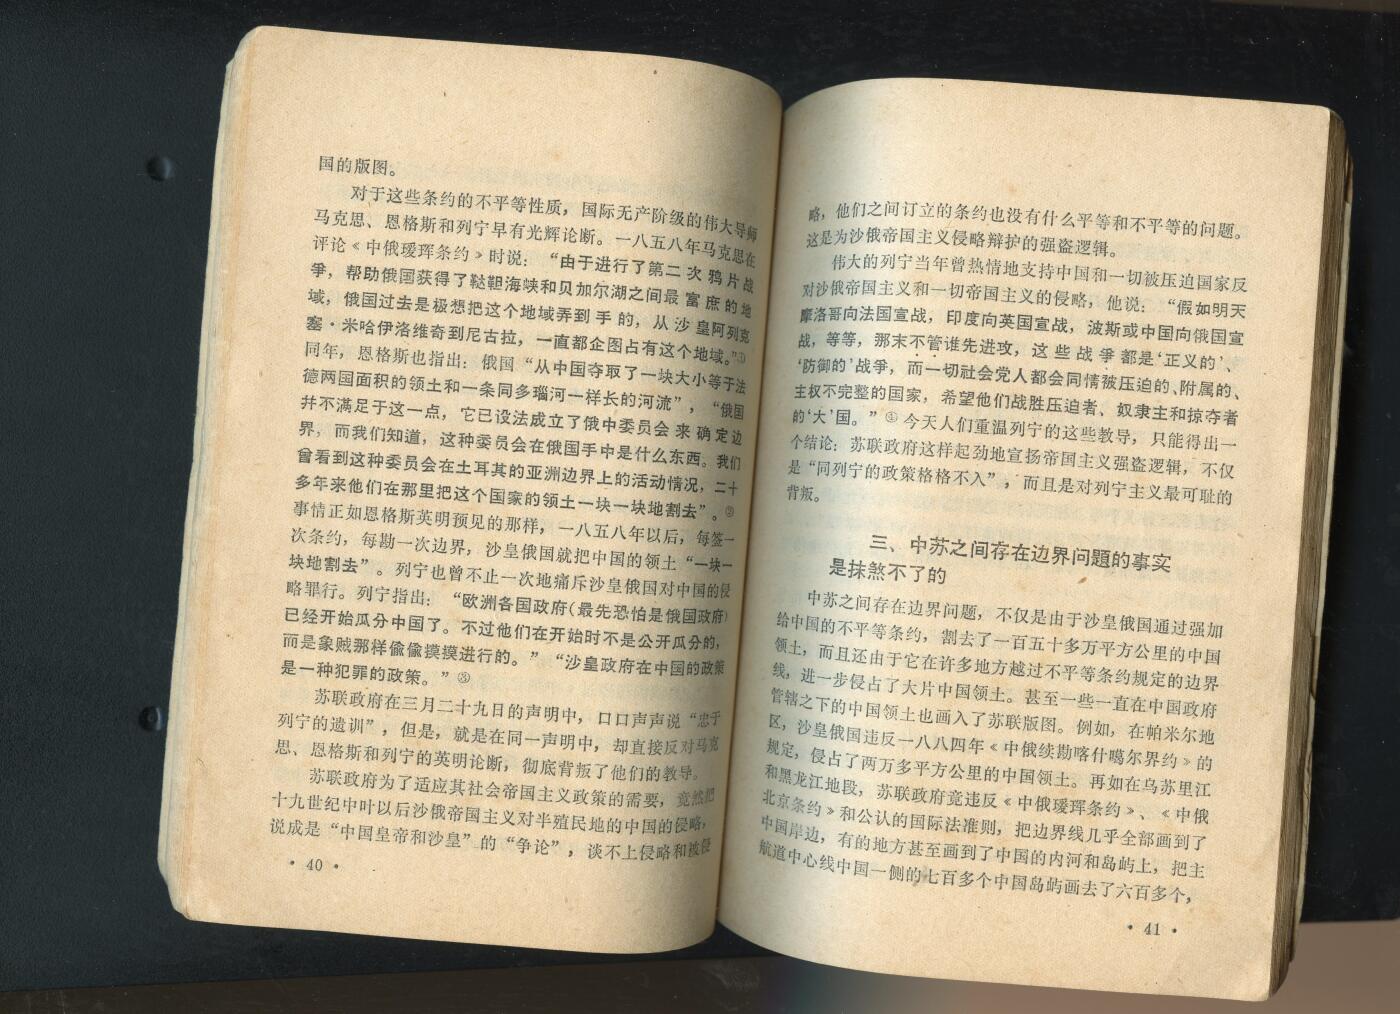 国的版图。
对于这些条约的不平等性质，国际无产阶级的伟大导师
马克思、恩格斯和列宁早有光辉论断。一八五八年马克思在
评论《中俄瑷珲条约》时说：“由于进行了第二次鸦片战
争，帮助俄国获得了鞑靼海峡和贝加尔湖之间最富庶的地
域，俄国过去是极想把这个地域弄到手的，从沙皇阿列克
塞·米哈伊洛维奇到尼古拉，一直都企图占有这个地域。”①
同年，恩格斯也指出：俄国“从中国夺取了一块大小等于法
德两国面积的领土和一条同多瑙河一样长的河流”，“俄国
并不满足于这一点，它已设法成立了俄中委员会来确定边
界，而我们知道，这种委员会在俄国手中是什么东西。我们
曾看到这种委员会在土耳其的亚洲边界上的活动情况，二十
多年来他们在那里把这个国家的领土一块一块地割去”。②
事情正如恩格斯英明预见的那样，一八五八年以后，每签一
次条约，每勘一次边界，沙皇俄国就把中国的领土“一块一
块地割去”。列宁也曾不止一次地痛斥沙皇俄国对中国的侵
略罪行。列宁指出：“欧洲各国政府(最先恐怕是俄国政府)
已经开始瓜分中国了。不过他们在开始时不是公开瓜分的，
而是象贼那样偷偷摸摸进行的。”“沙皇政府在中国的政策
是一种犯罪的政策。”③
苏联政府在三月二十九日的声明中，口口声声说“忠于
列宁的遗训”，但是，就是在同一声明中，却直接反对马克
思、恩格斯和列宁的英明论断，彻底背叛了他们的教导。
苏联政府为了适应其社会帝国主义政策的需要，竟然把
十九世纪中叶以后沙俄帝国主义对半殖民地的中国的侵略，
说成是“中国皇帝和沙皇”的“争论”，谈不上侵略和被侵
· 40 ·
略，他们之间订立的条约也没有什么平等和不平等的问题。
这是为沙俄帝国主义侵略辩护的强盗逻辑。
伟大的列宁当年曾热情地支持中国和一切被压迫国家反
对沙俄帝国主义和一切帝国主义的侵略，他说：“假如明天
摩洛哥向法国宣战，印度向英国宣战，波斯或中国向俄国宣
战，等等，那末不管谁先进攻，这些战争都是‘正义的’、
‘防御的’战争，而一切社会党人都会同情被压迫的、附属的、
主权不完整的国家，希望他们战胜压迫者、奴隶主和掠夺者
的‘大’国。”④今天人们重温列宁的这些教导，只能得出一
个结论：苏联政府这样起劲地宣扬帝国主义强盗逻辑，不仅
是“同列宁的政策格格不入”，而且是对列宁主义最可耻的
背叛。
三、中苏之间存在边界问题的事实
是抹煞不了的
中苏之间存在边界问题，不仅是由于沙皇俄国通过强加
给中国的不平等条约，割去了一百五十多万平方公里的中国
领土，而且还由于它在许多地方越过不平等条约规定的边界
线，进一步侵占了大片中国领土。甚至一些一直在中国政府
管辖之下的中国领土也画入了苏联版图。例如，在帕米尔地
区，沙皇俄国违反一八八四年《中俄续勘喀什噶尔界约》的
规定，侵占了两万多平方公里的中国领土。再如在乌苏里江
和黑龙江地段，苏联政府竟违反《中俄瑷珲条约》、《中俄
北京条约》和公认的国际法准则，把边界线几乎全部画到了
中国岸边，有的地方甚至画到了中国的内河和岛屿上，把主
航道中心线中国一侧的七百多个中国岛屿画去了六百多个，
· 41 ·